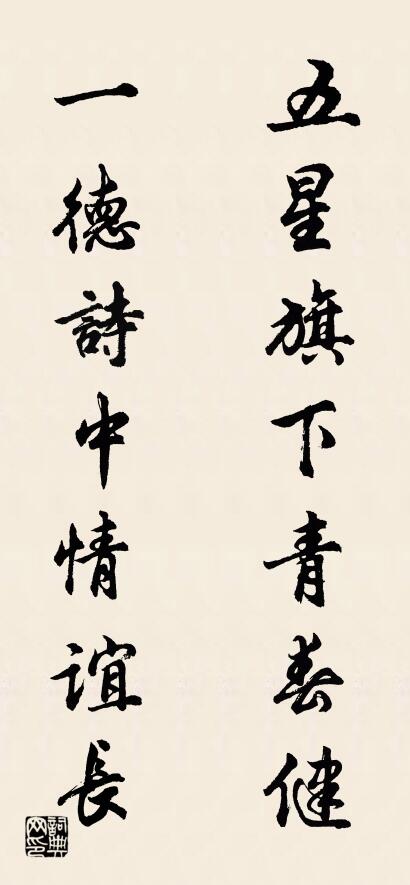 五星旗下青春健
一德詩中情誼長
詞典网印